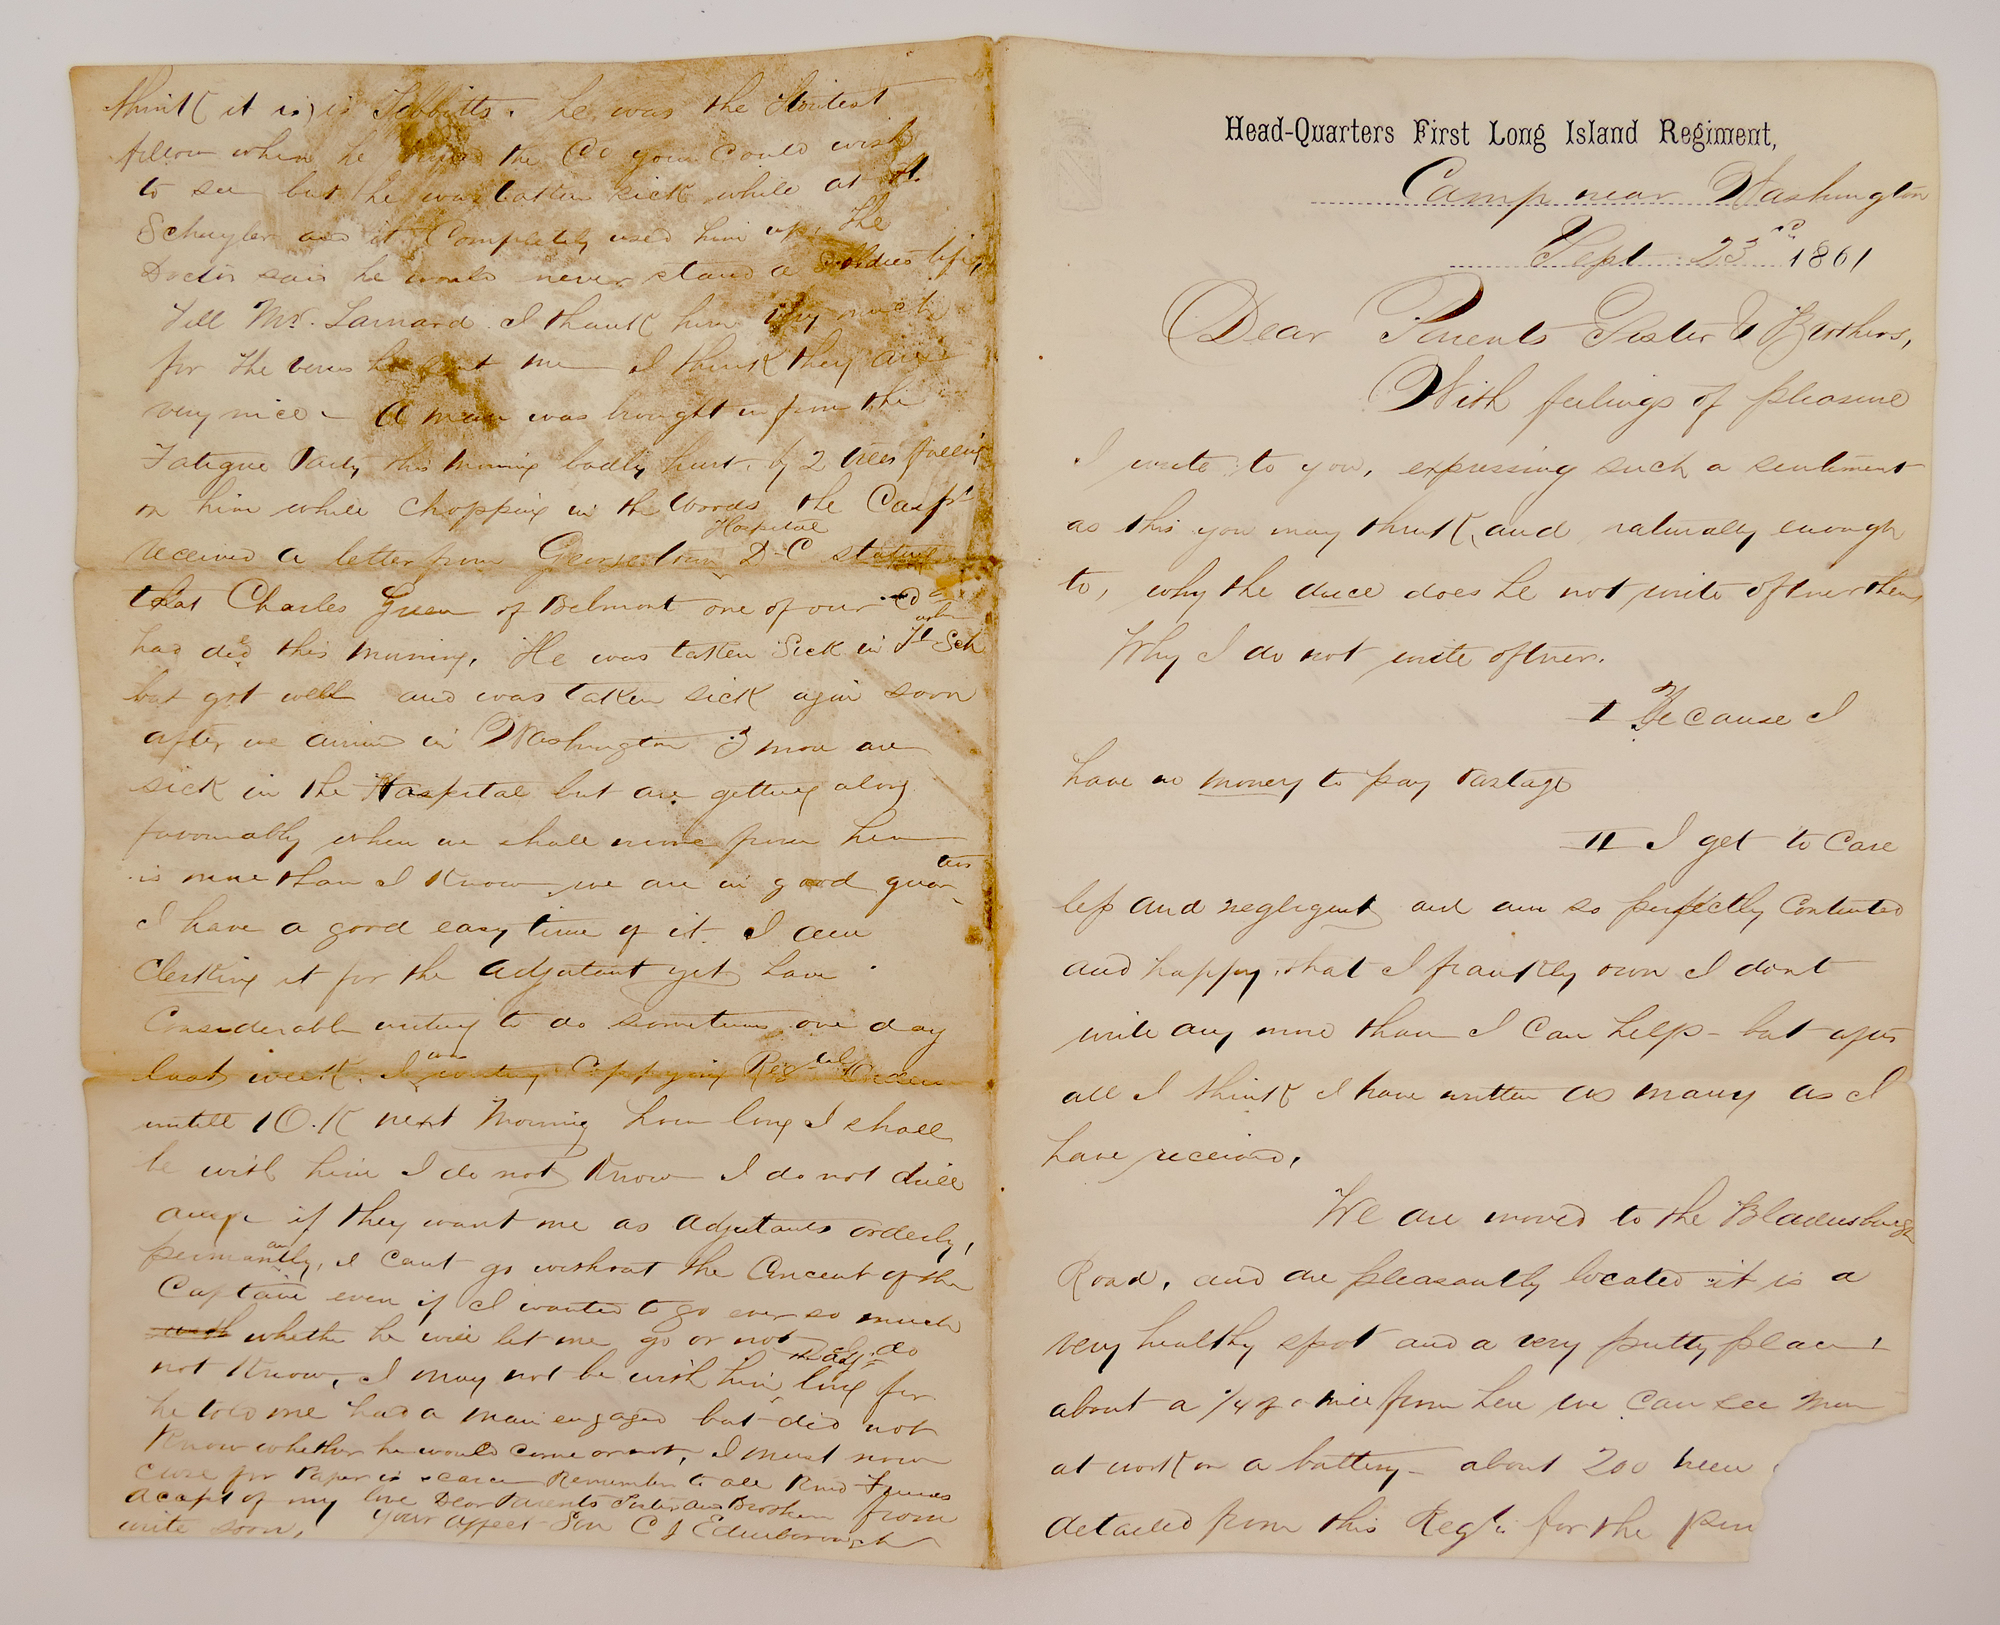 Head-Quarters First Long Island Regiment,
Camp near Washington
Sept 23rd 1861
Dear Parents Sister & Brothers,
With feelings of pleasure
I write to you, expressing such a sentiment
as this you may think, and naturally enough
to, why the duce does he not write oftner then
Why I do not write oftner.
I Because I
have no money to pay Postage
II I get to care
less and negligent and am so perfectly contented
and happy, that I frankly own I dont
write any more than I can help - but after
all I think I have written as many as I
have received,
We are moved to the Bladensburgh
Road, and are pleasantly located it is a
very healthy spot and a very pretty place,
about a 1/4 of a mile from here we can see men
at work on a battery - about 200 been
detailed from this Regt. for the pur
think it is) is Tebbitts. he was the stoutest
fellow when he joined the Co you could wish
to see but he was taken sick while at Ft.
Schuyler and it completely used him up, the
Doctor said he would never stand a soldiers life,
Tell Mr. Larnard I thank him very much
for the verses he sent me I think they are
very nice - A man was brought in from the
Fatigue Party this morning badly hurt, by 2 trees falling
on him while chopping in the woods, the Capt
received a letter from Georgetown Hospital D-C stating
that Charles Green of Belmont one of our Co
had died this morning, He was taken sick in Ft Sch
but got well and was taken sick again soon
after we arrived in Washington 3 more are
sick in the Hospital but are getting along
favourably when we shall move from here
is more than I know we are in good quarters
I have a good easy time of it. I am
Clerking it for the Adjutant yet, have
Considerable writing to do sometimes, one day
last week. I was writing Coppying Regtal Orders
untill 1 O.K next Morning how long I shall
be with him I do not know I do not drill
any if they want me as Adjutants orderly,
permanantly, I cant go without the Concent of the
Captain even if I wanted to go ever so much
whether he will let me go or not I do
not know, I may not be with him the Adjt long for
he told me had a man engaged but did not
know whether he would come or not, I must now
close for Paper is scarce Remember to all kind Friends
accept of my love Dear Parents Sister and Brothers from
write soon, your affect Son C J Edinborough